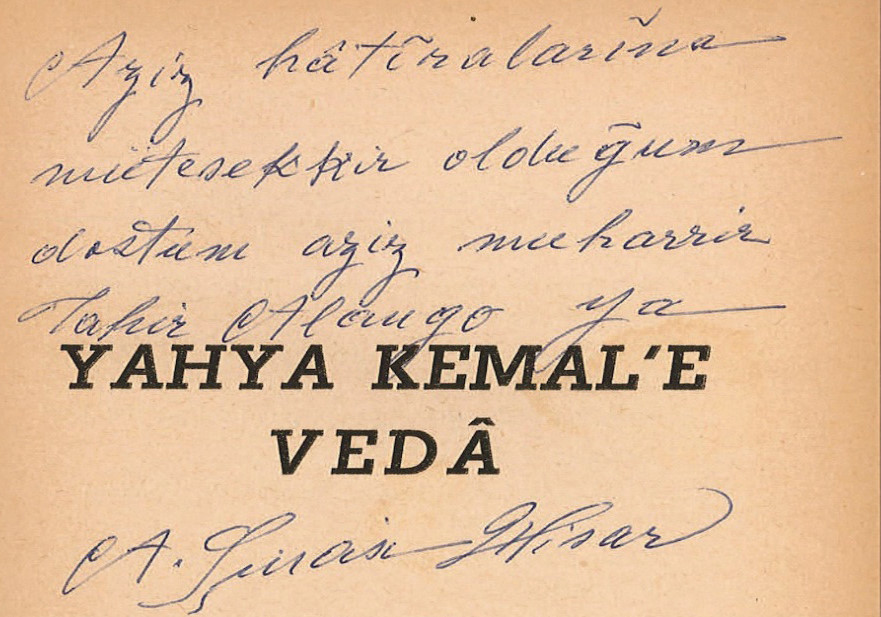 Aziz hâtıralarına
müteşekkir olduğum
dostum aziz muharrir
Tahir Alangu ya
YAHYA KEMAL'E
VEDÂ
A. Şinasi Hisar